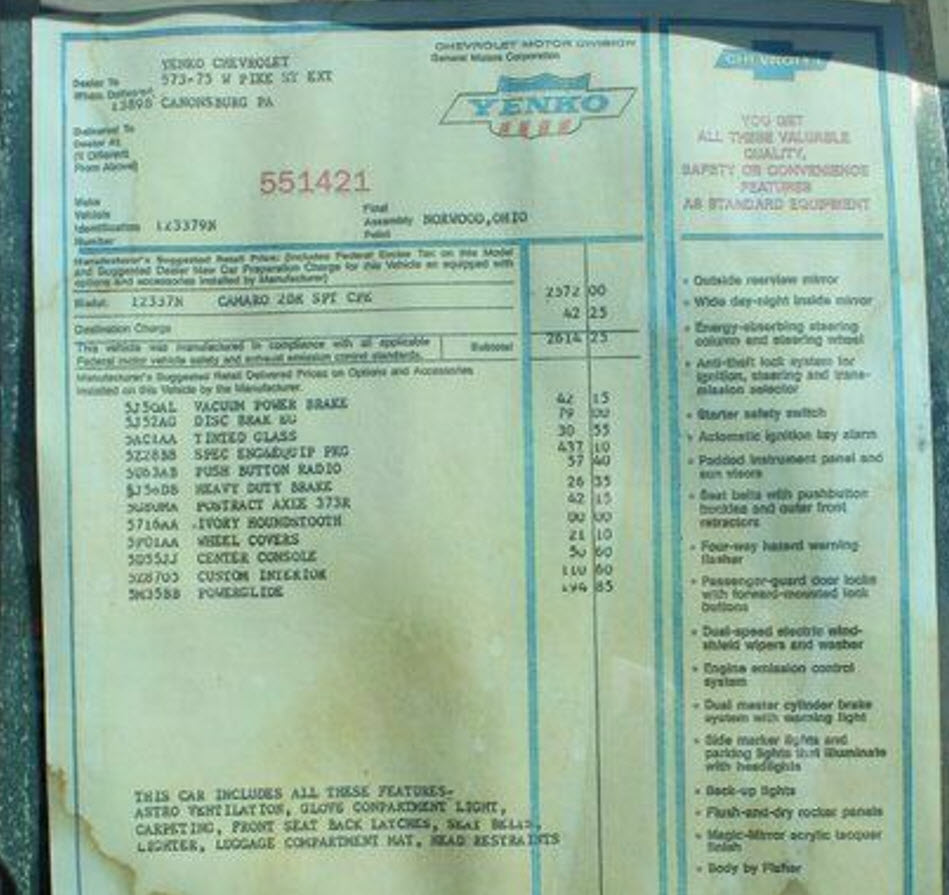 CHEVROLET MOTOR DIVISION
General Motors Corporation
YENKO
Dealer To
Whom Delivered
YENKO CHEVROLET
573-75 W PIKE ST EXT
CANONSBURG PA
Delivered To
Dealer At
(If Different
From Above)
551421
Vehicle
Identification
Number
Final
Assembly NORWOOD, OHIO
Point
Manufacturer's Suggested Retail Price: (Includes Federal Excise Tax on this Model
and Suggested Dealer New Car Preparation Charge for this Vehicle as equipped with
options and accessories installed by Manufacturer)
Model: 12337N CAMARO 2DR SPT CPE 2572 00
Destination Charge 42 25
This vehicle was manufactured in compliance with all applicable
Federal motor vehicle safety and exhaust emission control standards. Subtotal 2614 25
Manufacturer's Suggested Retail Delivered Prices on Options and Accessories
Installed on this Vehicle by the Manufacturer.
5J50AL VACUUM POWER BRAKE 42 15
5J52AG DISC BRAK EQ 79 00
TINTED GLASS 30 55
5Z28BB SPEC ENG&EQUIP PKG 437 10
5U63AB PUSH BUTTON RADIO 57 40
HEAVY DUTY BRAKE 26 35
POSTRACT AXLE 373R 42 15
5716AA .IVORY HOUNDSTOOTH 00 00
5P01AA WHEEL COVERS 21 10
5D55JJ CENTER CONSOLE 50 60
CUSTOM INTERIOR 110 60
5M35BB POWERGLIDE 194 85
THIS CAR INCLUDES ALL THESE FEATURES-
ASTRO VENTILATION, GLOVE COMPARTMENT LIGHT,
CARPETING, FRONT SEAT BACK LATCHES, SEAT BELTS,
LIGHTER, LUGGAGE COMPARTMENT MAT, HEAD RESTRAINTS
CHEVROLET
YOU GET
ALL THESE VALUABLE
QUALITY,
SAFETY OR CONVENIENCE
FEATURES
AS STANDARD EQUIPMENT
• Outside rearview mirror
• Wide day-night inside mirror
• Energy-absorbing steering
column and steering wheel
• Anti-theft lock system for
ignition, steering and trans-
mission selector
• Starter safety switch
• Automatic ignition key alarm
• Padded instrument panel and
sun visors
• Seat belts with pushbutton
buckles and outer front
retractors
• Four-way hazard warning
flasher
• Passenger-guard door locks
with forward-mounted lock
buttons
• Dual-speed electric wind-
shield wipers and washer
• Engine emission control
system
• Dual master cylinder brake
system with warning light
• Side marker lights and
parking lights that illuminate
with headlights
• Back-up lights
• Flush-and-dry rocker panels
• Magic-Mirror acrylic lacquer
finish
• Body by Fisher